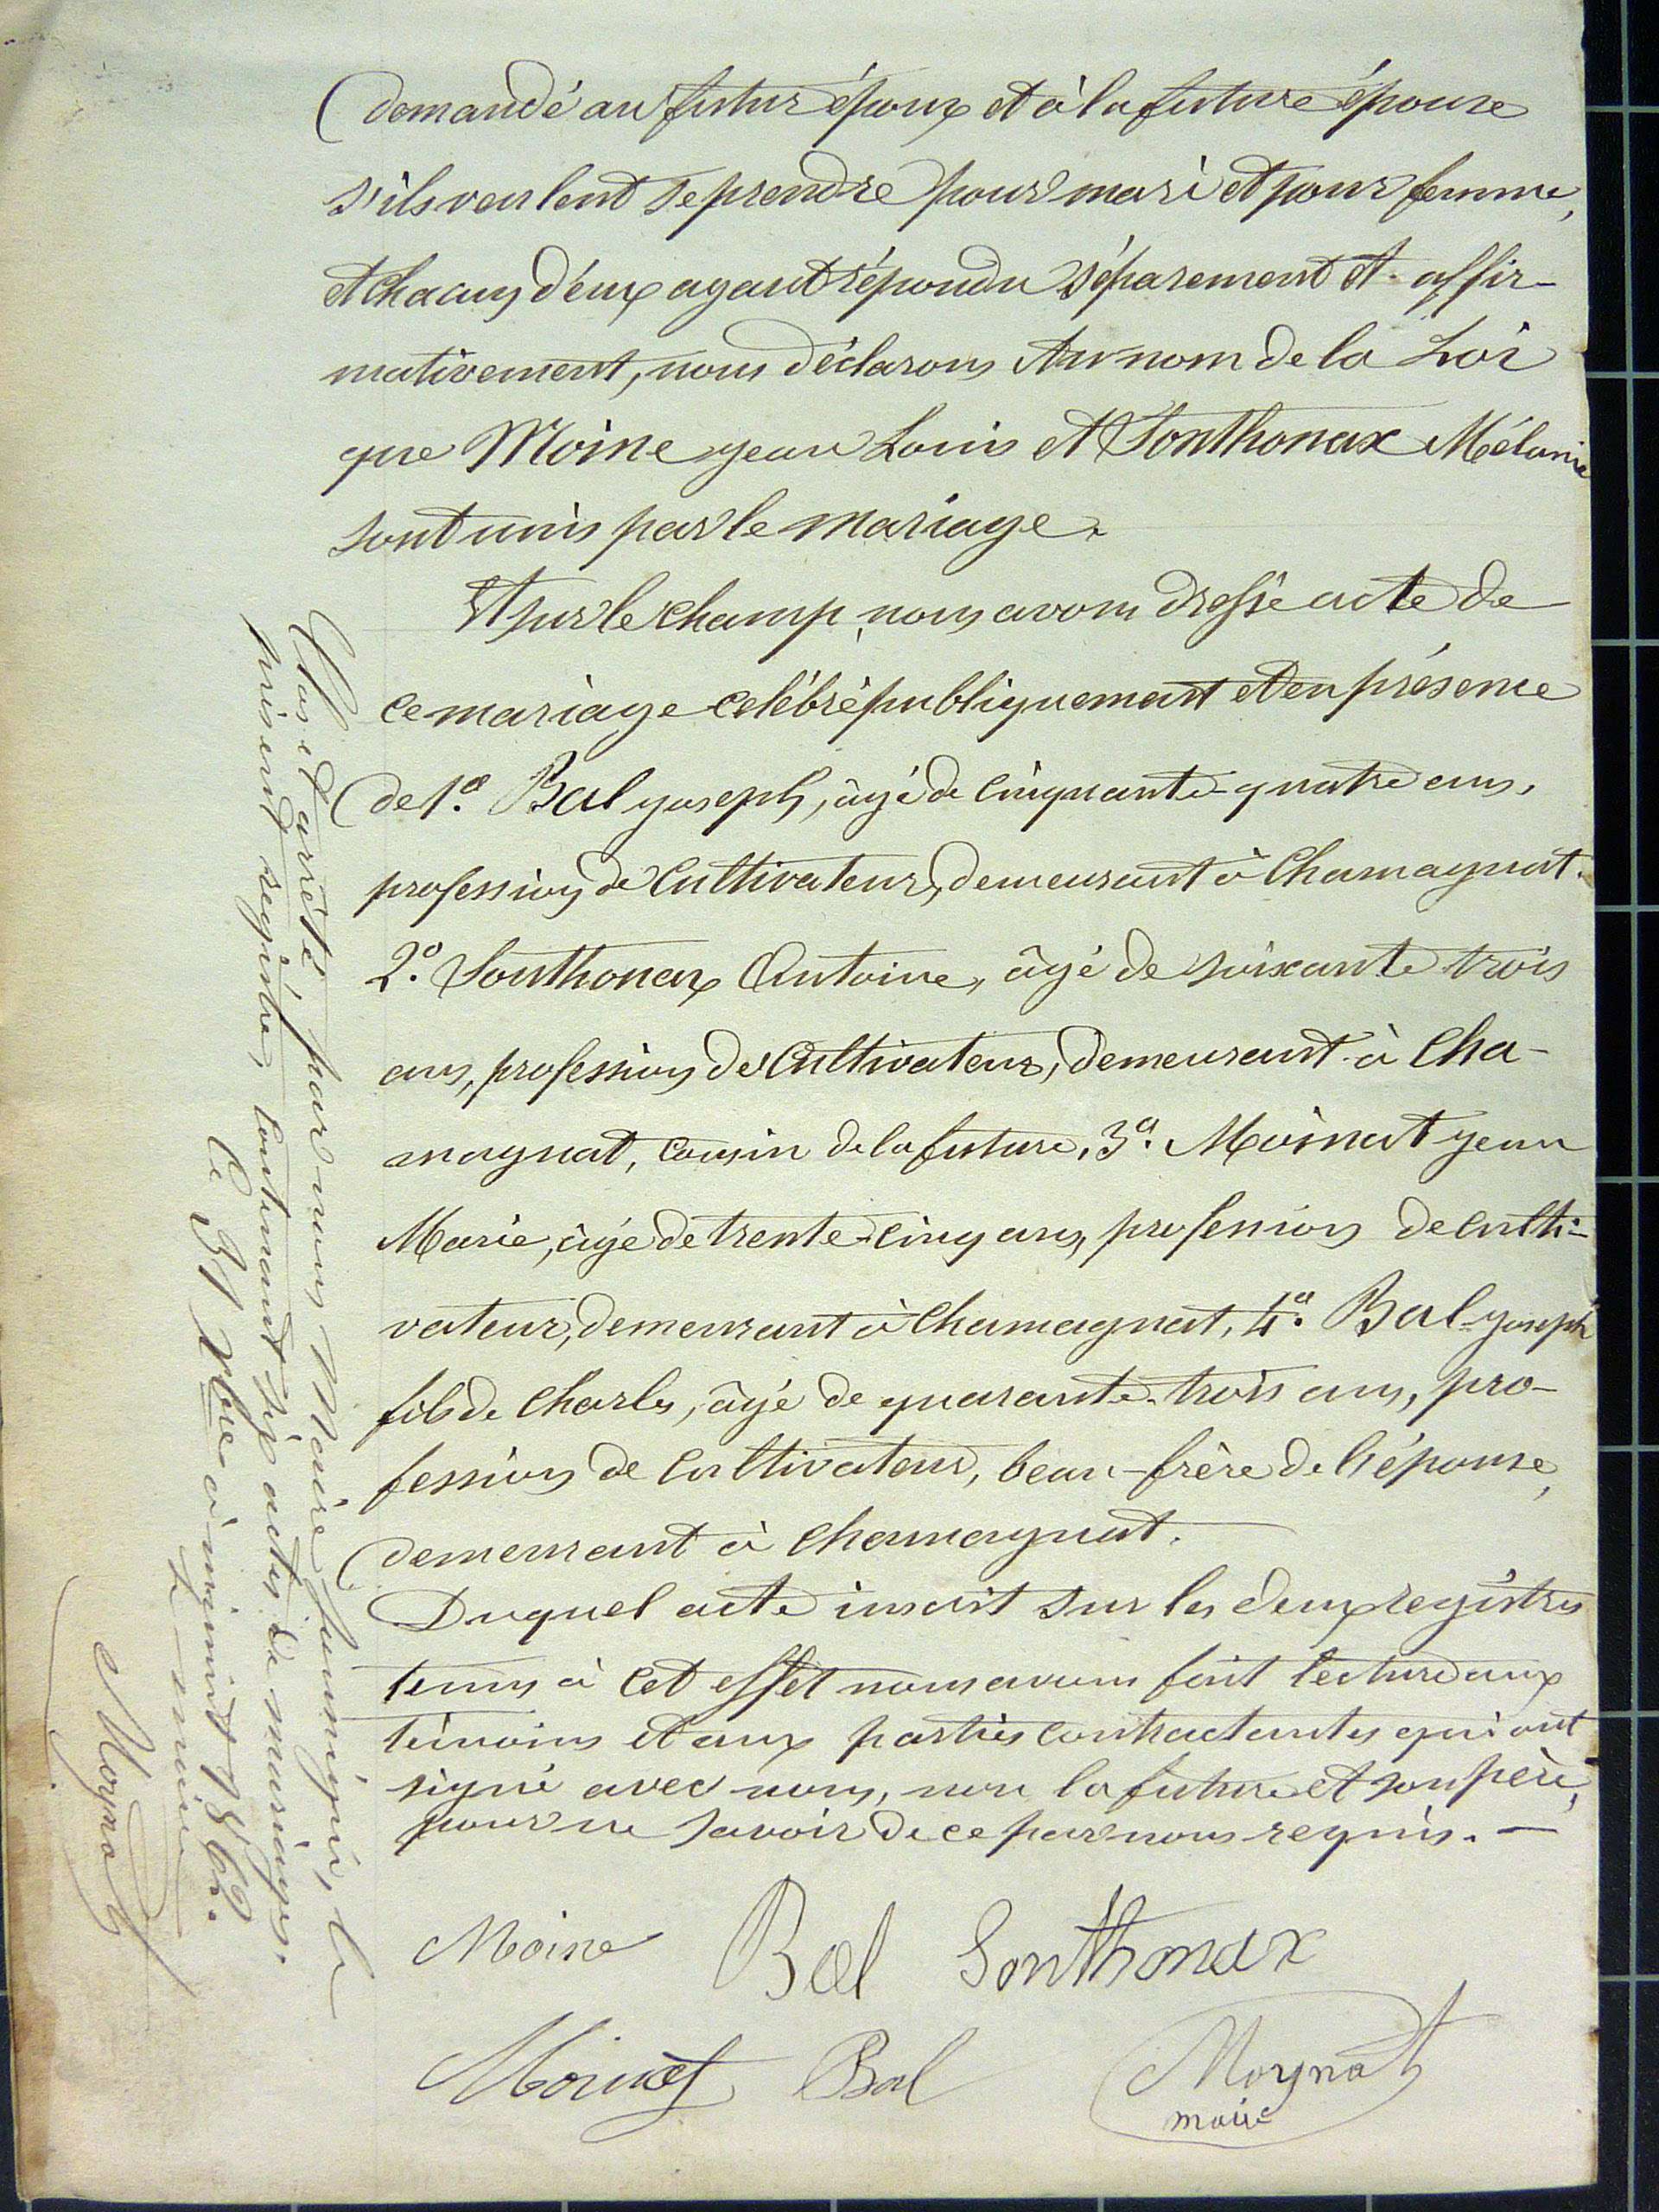 demandé au futur époux et à la future épouse
s'ils veulent se prendre pour mari et pour femme,
et chacun d'eux ayant répondu séparement et affir-
mativement, nous déclarons Au nom de la Loi
que Moine jean Louis et Sonthonax Mélanie
sont unis par le mariage.
Et sur le champ, nous avons dressé acte de
ce mariage celébré publiquement et en présence
de 1º. Bal joseph, âgé de cinquante-quatre ans,
profession de Cultivateur, demeurant à Chamagnat.
2º. Sonthonax Antoine, âgé de soixante trois
ans, profession de Cultivateur, demeurant à Cha-
magnat, cousin de la future, 3º. Moinat jean
Marie, âgé de trente-cinq ans, profession de culti-
vateur, demeurant à Chamagnat, 4º. Bal joseph
fils de Charles, âgé de quarante-trois ans, pro-
fession de Cultivateur, beau-frère de l'épouse,
demeurant à Chamagnat.
Duquel acte inscrit sur les deux registres
tenus à cet effet nous avons fait lecture aux
témoins et aux parties contractantes qui ont
signé avec nous, non la future et son père,
pour ne savoir de ce par nous requis. —
Moine Bal Sonthonax
Moinat Bal Moynat
maire
Clos et arrêté par nous Maire soussigné, le
présent registre, contenant six actes de mariages.
Ce 31 Xbre à minuit
Le maire
Moynat